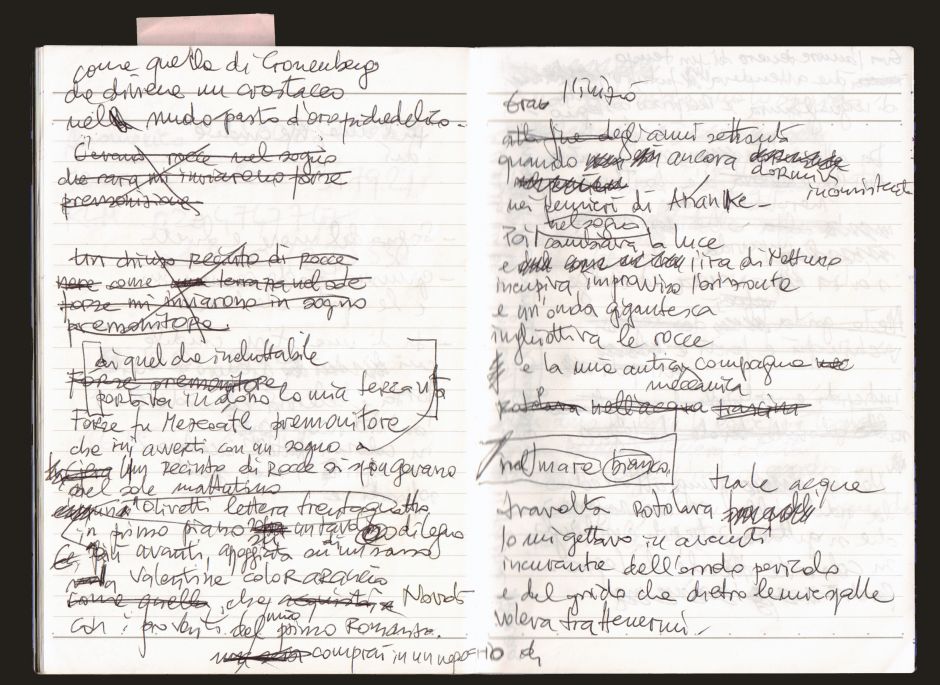 come quella di Cronenberg
che diviene un crostaceo
nel nudo pasto
C'erano rocce nel sogno
che rara mi inviarono forze
premonizione
Un chiuso recinto di rocce
nere come terrazza nel sole
forze mi inviarono in sogno
premonitore.
di quel che ineluttabile
Forze premonitore
portava in dono la mia terza
Forze fu premonitore
che mi avvertì con un sogno
Un recinto di rocce si
nel sole mattutino
Olivetti lettera trentaquattro
in primo piano un tavolo di legno
più avanti, appoggiata su di un sasso
Valentine color arancio
come quella, che acquistai a
con i proventi del mio primo Romanzo.
comprai in un negozio di
l'inizio
alla fine degli anni settanta
quando ancora dormivi
inconsistente
nei pensieri di Ananke
nel sogno
Poi cambiava la luce
e l'ira di Nettuno
incupiva improvvisa l'orizzonte
e un'onda gigantesca
inghiottiva le rocce
e la mia antica compagna
meccanica
rotolava nell'acqua
nel mare bianco
tra le acque
travolta rotolava
Io mi gettavo in avanti
incurante dell'orrido pericolo
e del grido che dietro le mie spalle
voleva trattenermi.